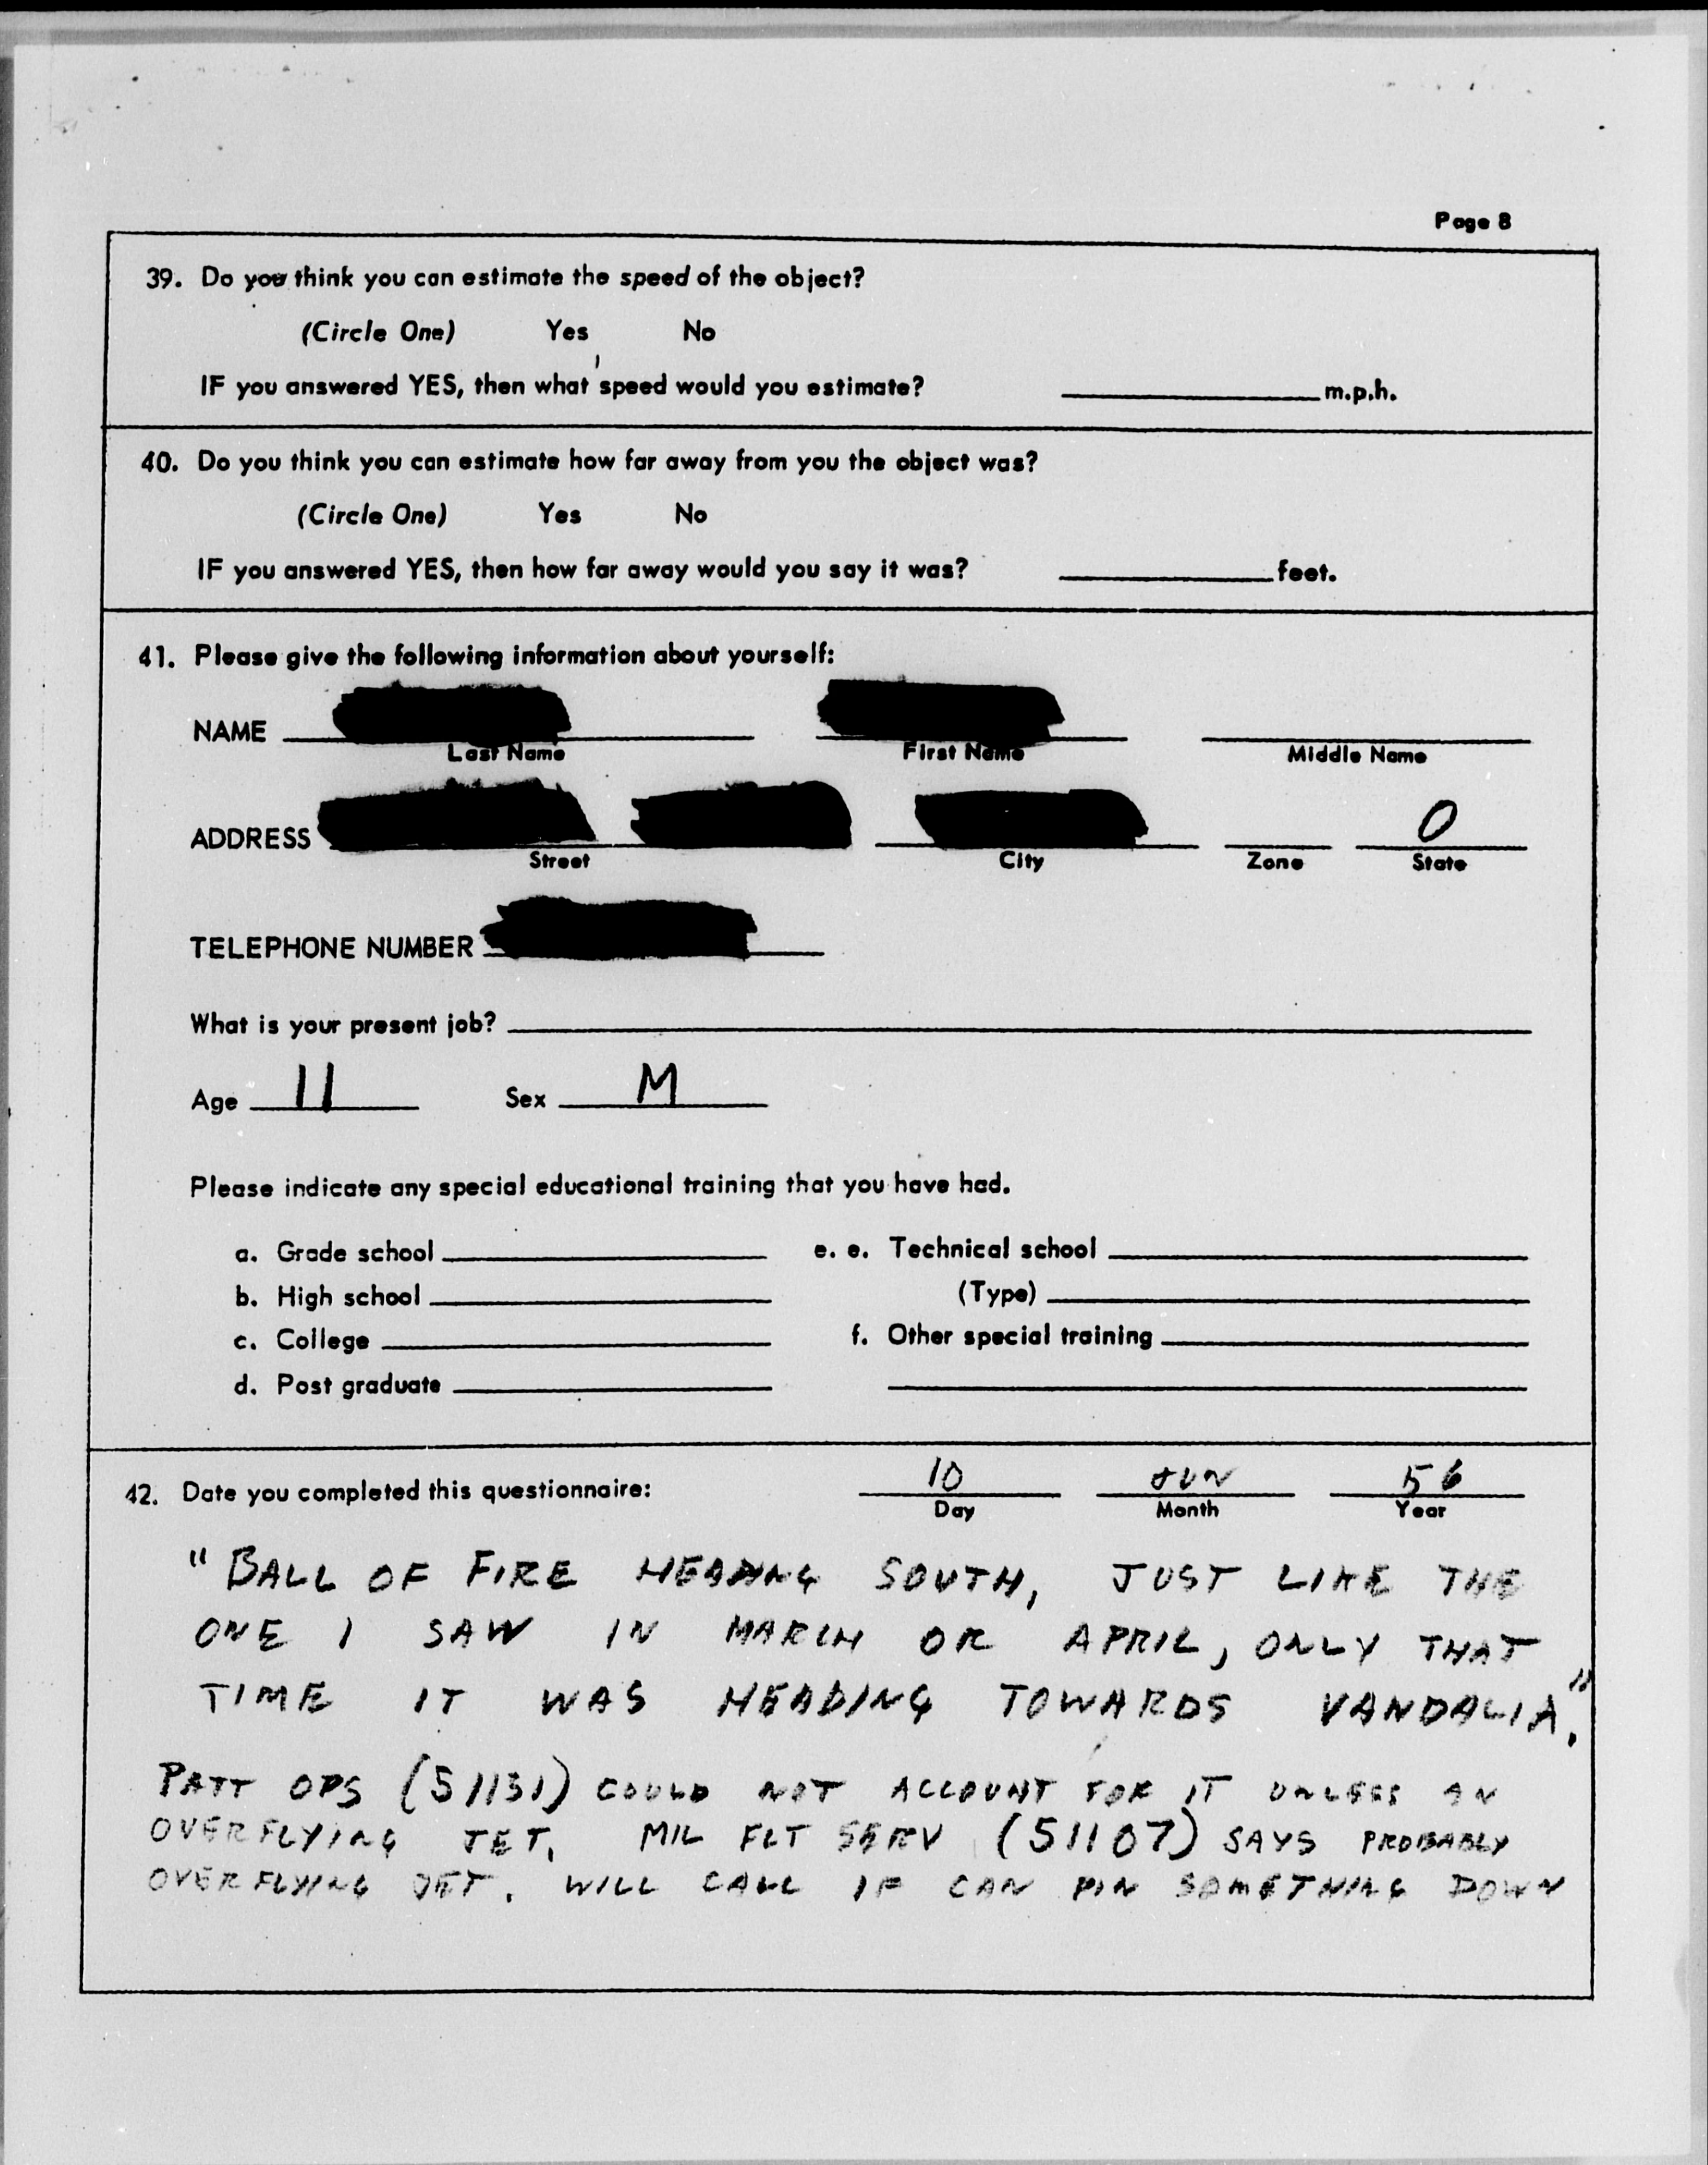 Page 8
39. Do you think you can estimate the speed of the object?
(Circle One) Yes No
IF you answered YES, then what speed would you estimate? m.p.h.
40. Do you think you can estimate how far away from you the object was?
(Circle One) Yes No
IF you answered YES, then how far away would you say it was? feet.
41. Please give the following information about yourself:
NAME
Last Name First Name Middle Name
ADDRESS O
Street City Zone State
TELEPHONE NUMBER
What is your present job?
Age 11 Sex M
Please indicate any special educational training that you have had.
a. Grade school e. e. Technical school
b. High school (Type)
c. College f. Other special training
d. Post graduate
42. Date you completed this questionnaire: 10 JUN 56
Day Month Year
"BALL OF FIRE HEADING SOUTH, JUST LIKE THE
ONE I SAW IN MARCH OR APRIL, ONLY THAT
TIME IT WAS HEADING TOWARDS VANDALIA."
PATT OPS (51131) COULD NOT ACCOUNT FOR IT UNLESS AN
OVERFLYING JET. MIL FLT SERV (51107) SAYS PROBABLY
OVERFLYING JET. WILL CALL IF CAN PIN SOMETHING DOWN